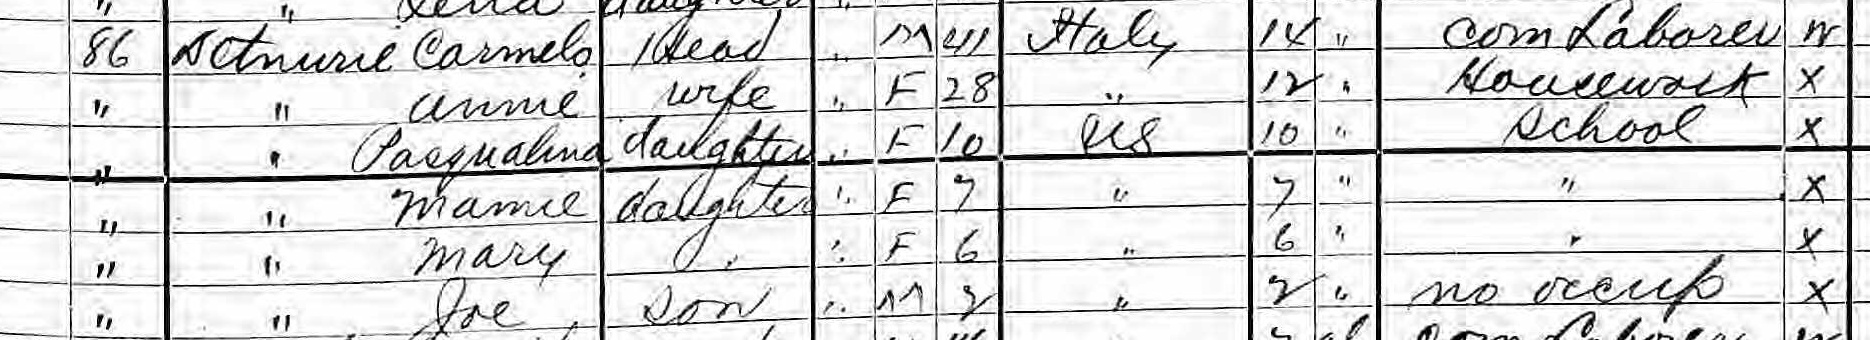 " " Lena daughter "
86 Carmelo Head " M 41 Italy 14 " Com Laborer W
" " Annie wife " F 28 " 12 " Housework X
" " Pasqualina daughter " F 10 US 10 " School X
" " Mamie daughter " F 7 " 7 " " X
" " Mary " " F 6 " 6 " " X
" " Joe son " M 2 " 2 " no occup X
Com Laborer